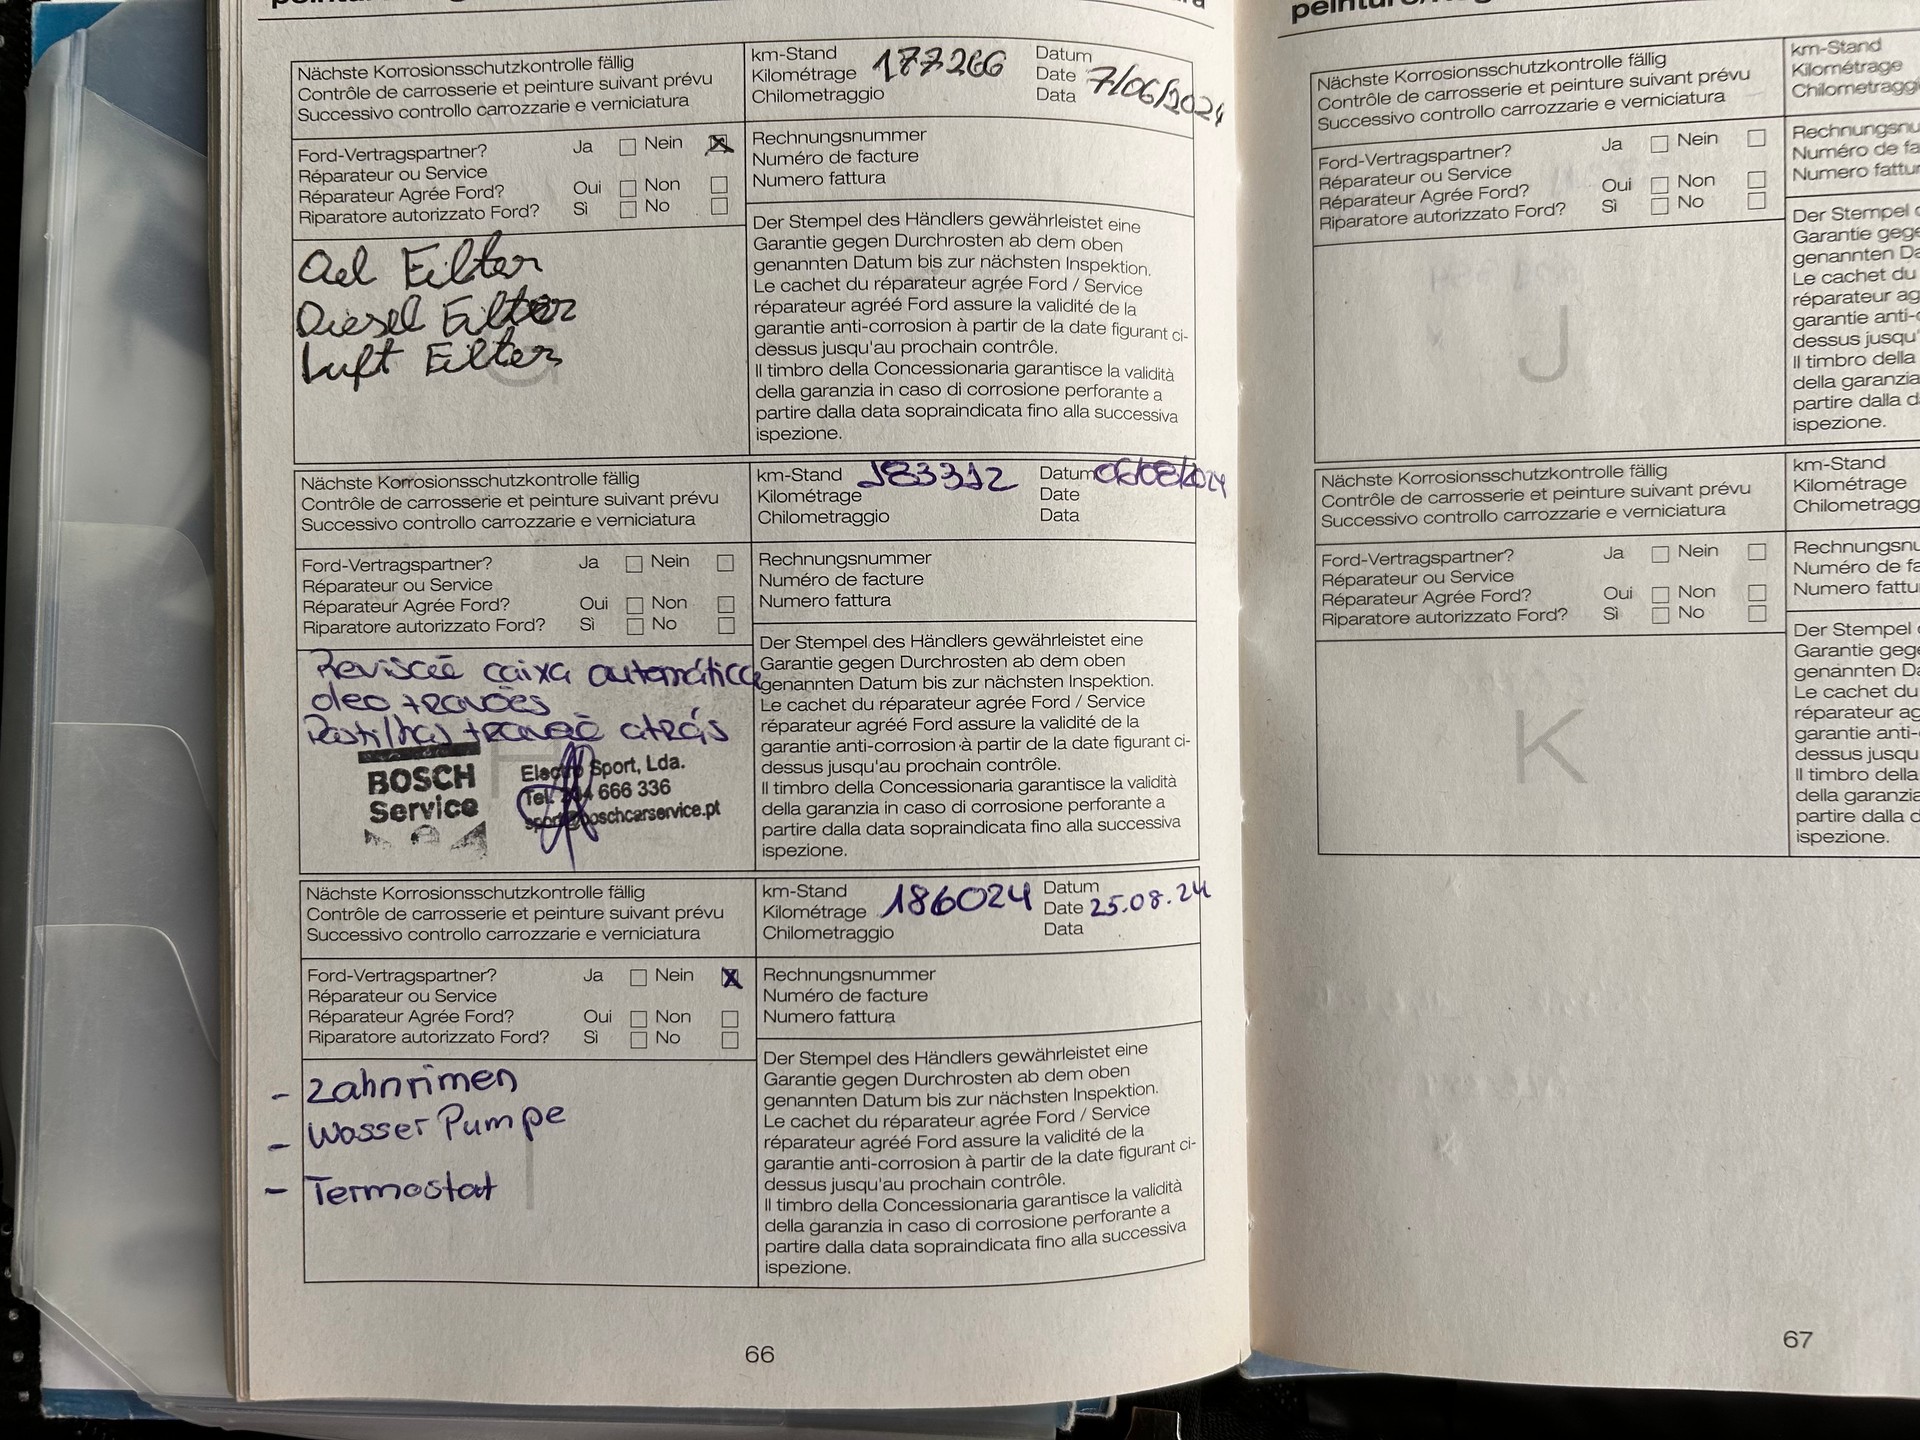 Nächste Korrosionsschutzkontrolle fällig
Contrôle de carrosserie et peinture suivant prévu
Successivo controllo carrozzarie e verniciatura
km-Stand 177266
Kilométrage
Chilometraggio
Datum
Date 7/06/2024
Data
Ford-Vertragspartner? Ja Nein X
Réparateur ou Service
Réparateur Agrée Ford? Oui Non
Riparatore autorizzato Ford? Sì No
Rechnungsnummer
Numéro de facture
Numero fattura
Oel Filter
Diesel Filter
Luft Filter
G
Der Stempel des Händlers gewährleistet eine
Garantie gegen Durchrosten ab dem oben
genannten Datum bis zur nächsten Inspektion.
Le cachet du réparateur agrée Ford / Service
réparateur agréé Ford assure la validité de la
garantie anti-corrosion à partir de la date figurant ci-
dessus jusqu'au prochain contrôle.
Il timbro della Concessionaria garantisce la validità
della garanzia in caso di corrosione perforante a
partire dalla data sopraindicata fino alla successiva
ispezione.
Nächste Korrosionsschutzkontrolle fällig
Contrôle de carrosserie et peinture suivant prévu
Successivo controllo carrozzarie e verniciatura
km-Stand 183312
Kilométrage
Chilometraggio
Datum 06/08/2024
Date
Data
Ford-Vertragspartner? Ja Nein
Réparateur ou Service
Réparateur Agrée Ford? Oui Non
Riparatore autorizzato Ford? Sì No
Rechnungsnummer
Numéro de facture
Numero fattura
Revisão caixa automática
oleo travões
Pastilhas travão atrás
H
BOSCH
Service
Electro Sport, Lda.
Tel. 666 336
sport@boschcarservice.pt
Der Stempel des Händlers gewährleistet eine
Garantie gegen Durchrosten ab dem oben
genannten Datum bis zur nächsten Inspektion.
Le cachet du réparateur agrée Ford / Service
réparateur agréé Ford assure la validité de la
garantie anti-corrosion à partir de la date figurant ci-
dessus jusqu'au prochain contrôle.
Il timbro della Concessionaria garantisce la validità
della garanzia in caso di corrosione perforante a
partire dalla data sopraindicata fino alla successiva
ispezione.
Nächste Korrosionsschutzkontrolle fällig
Contrôle de carrosserie et peinture suivant prévu
Successivo controllo carrozzarie e verniciatura
km-Stand
Kilométrage 186024
Chilometraggio
Datum
Date 25.08.24
Data
Ford-Vertragspartner? Ja Nein X
Réparateur ou Service
Réparateur Agrée Ford? Oui Non
Riparatore autorizzato Ford? Sì No
Rechnungsnummer
Numéro de facture
Numero fattura
- Zahnrimen
- Wasser Pumpe
- Termostat
I
Der Stempel des Händlers gewährleistet eine
Garantie gegen Durchrosten ab dem oben
genannten Datum bis zur nächsten Inspektion.
Le cachet du réparateur agrée Ford / Service
réparateur agréé Ford assure la validité de la
garantie anti-corrosion à partir de la date figurant ci-
dessus jusqu'au prochain contrôle.
Il timbro della Concessionaria garantisce la validità
della garanzia in caso di corrosione perforante a
partire dalla data sopraindicata fino alla successiva
ispezione.
66
Nächste Korrosionsschutzkontrolle fällig
Contrôle de carrosserie et peinture suivant prévu
Successivo controllo carrozzarie e verniciatura
km-Stand
Kilométrage
Chilometragg
Ford-Vertragspartner? Ja Nein
Réparateur ou Service
Réparateur Agrée Ford? Oui Non
Riparatore autorizzato Ford? Sì No
Rechnungsnu
Numéro de fa
Numero fattur
J
Der Stempel
Garantie gege
genannten Da
Le cachet du
réparateur ag
garantie anti-
dessus jusqu'
Il timbro della
della garanzia
partire dalla d
ispezione.
Nächste Korrosionsschutzkontrolle fällig
Contrôle de carrosserie et peinture suivant prévu
Successivo controllo carrozzarie e verniciatura
km-Stand
Kilométrage
Chilometragg
Ford-Vertragspartner? Ja Nein
Réparateur ou Service
Réparateur Agrée Ford? Oui Non
Riparatore autorizzato Ford? Sì No
Rechnungsnu
Numéro de fa
Numero fattu
K
Der Stempel
Garantie geg
genannten Da
Le cachet du
réparateur ag
garantie anti-
dessus jusqu
Il timbro della
della garanzia
partire dalla d
ispezione.
67